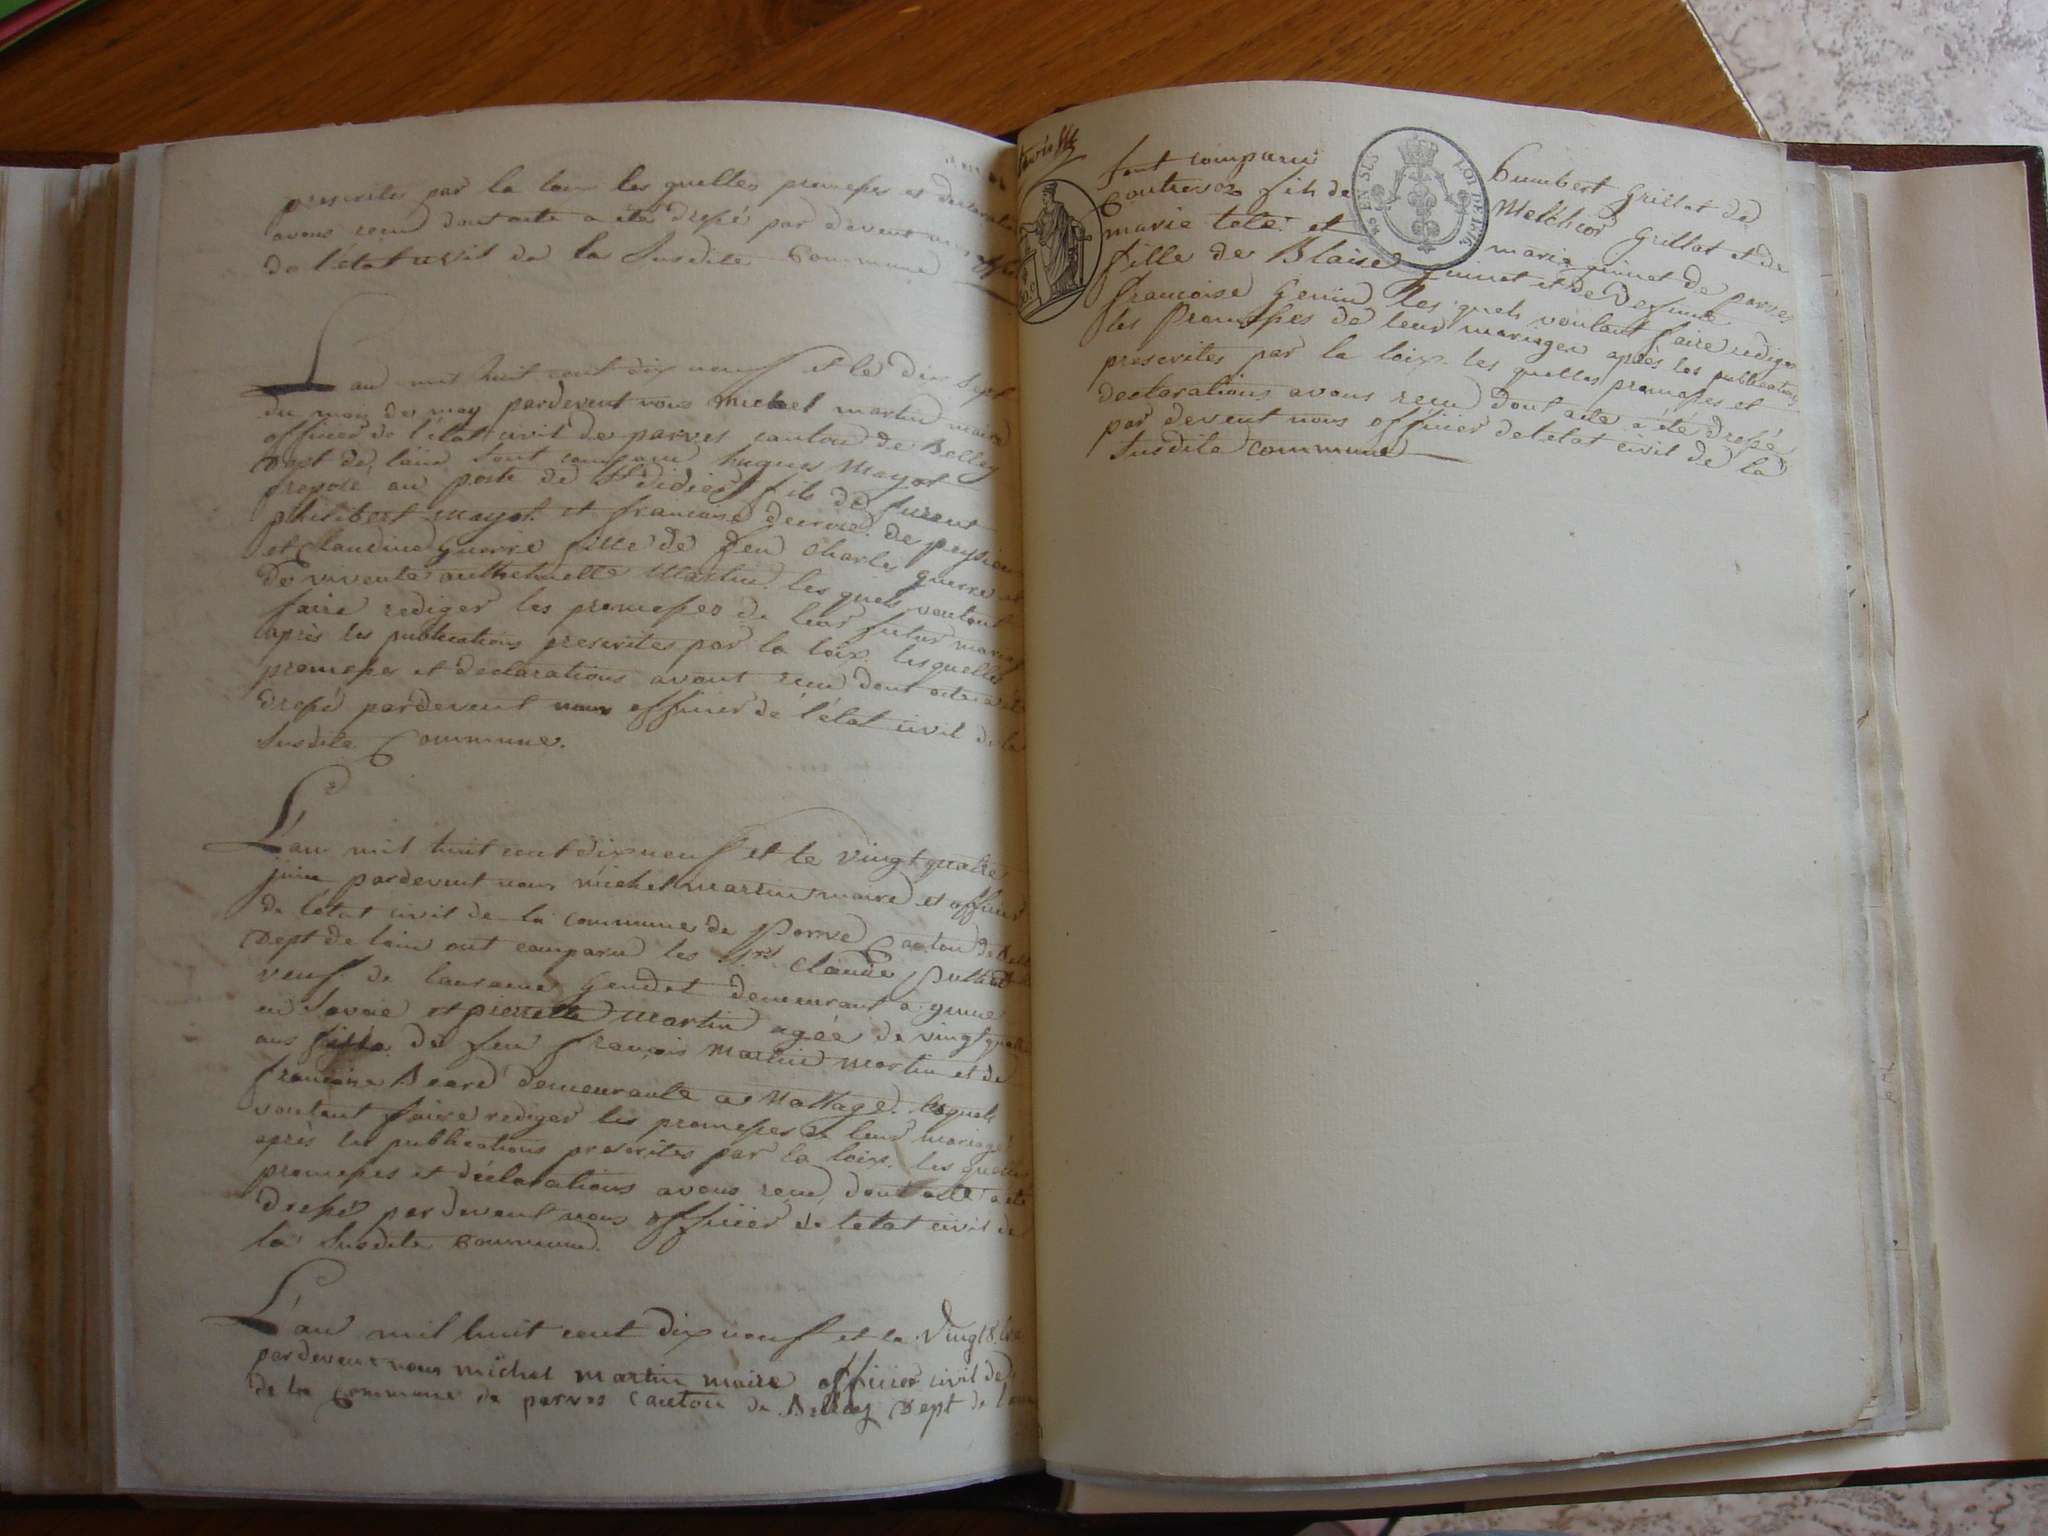 prescrites par la loix les quelles promesses et declarations
avons recu dont acte a été dressé par devent nous offi
de l'état civil de la susdite Commune
L'an mil huit cent dix neuf et le dix sept
du mois de may pardevent nous michel martin maire
officier de l'état civil de parves canton de Belley
Dept de l'ain sont comparu hugues Mayot
preposé au poste de St didier fils de furent
philibert mayot et francoise decroze de peyzieu
et Claudine guerre fille de feu Charles guerre et
de vivente anthelmette Martin les quels voulant
faire rediger les promesses de leur futur mariage
après les publications prescrites par la loix lesquelles
promesses et declarations avont recu dont acte a été
dressé pardevent nous officier de l'état civil de la
susdite Commune.
L'an mil huit cent dix neuf et le vingt quatre
juin pardevent nous michel martin maire et officier
de l'état civil de la commune de Parve Canton de Bell
Dept de l'ain ont comparu les Srs Claude
veuf de Gendet demeurant a yenne
en Savoie et pierrette Martin agée de vingt quatre
ans fille de feu françois Martin martin et de
francoise Beard demeurante a Nattage lesquels
voulant faire rediger les promesses de leur mariage
après les publications prescrites par la loix les quelles
promesses et déclarations avons recu dont acte a été
dressé par devent nous officier de l'état civil de
la susdite commune.
L'an mil huit cent dix neuf et le Vingt 8bre
pardevent nous michel martin maire officier civil de
de la Commune de parves Canton de Belley Dept de l'ain
sont comparu humbert Grillot de
fils de Melchior Grillot et de
marie et marie ginet de parves
fille de Blaise ginet et de defunte
francoise Genin les quels voulant faire rediger
les Promesses de leur mariage après les publications
prescrites par la loix les quelles promesses et
declarations avons recu dont acte a été dressé
par devent nous officier de l'etat civil de la
susdite commune
EN SUS